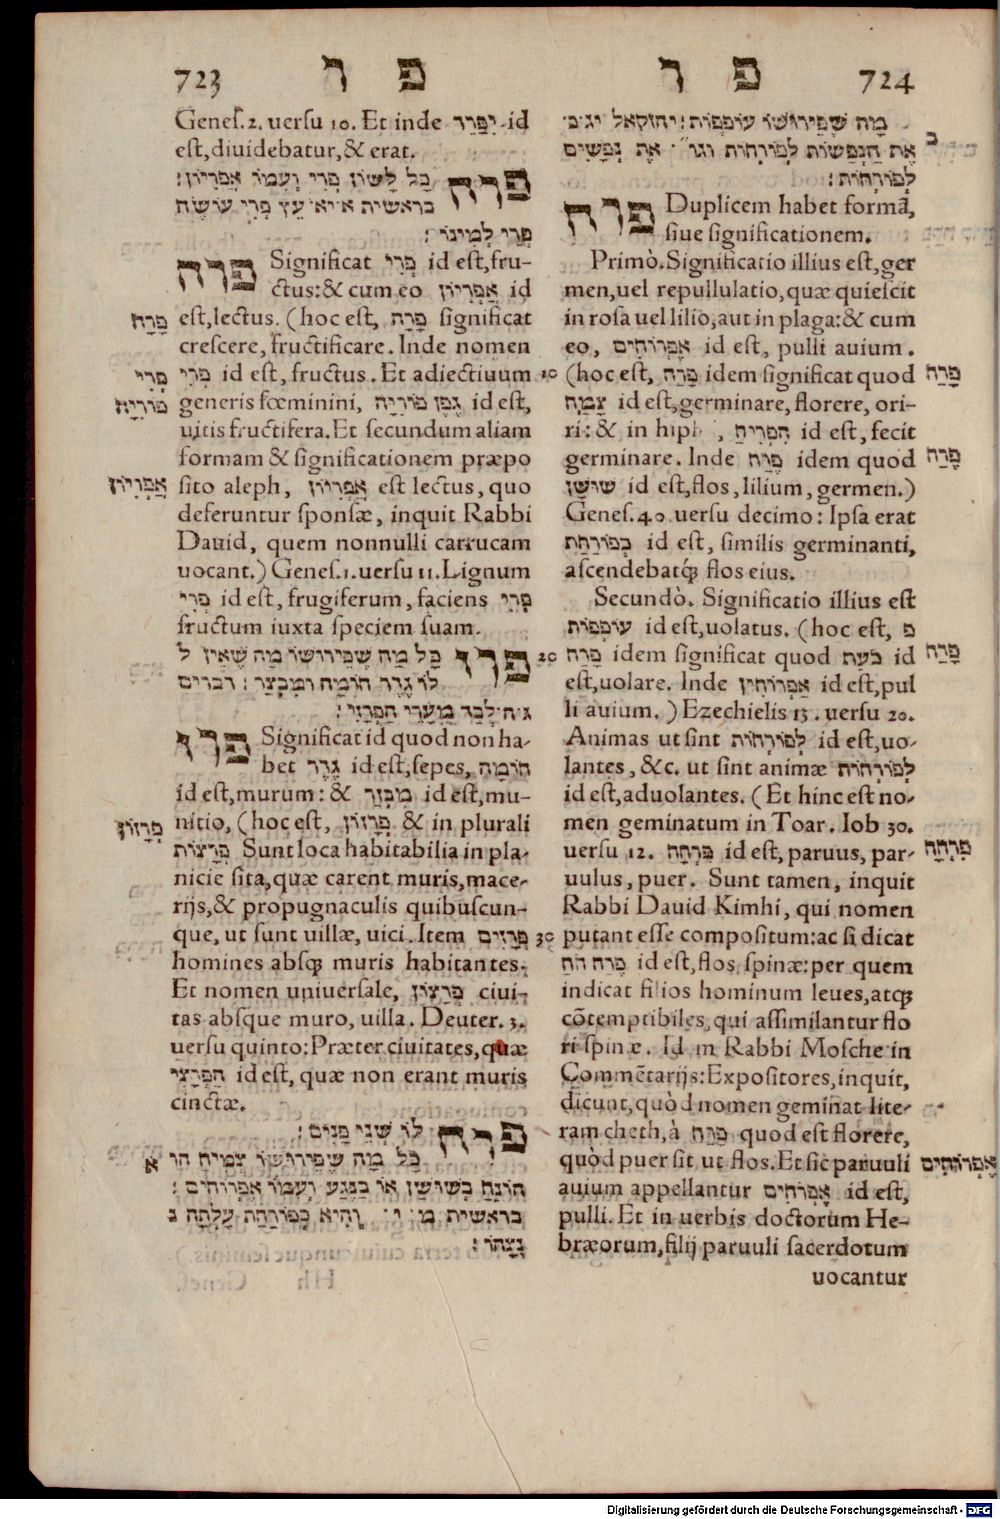 723 פ ר
Genes. 2. uersu 10. Et inde יִפָּרֵד id
est, diuidebatur, & erat.
פרה כָּל לָשׁוֹן פְּרִי וְעִמּוֹ אֲפִּרְיוֹן׃
בראשית א׳יא׳ עֵץ פְּרִי עוֹשֶׂה
פְּרִי לְמִינוֹ׃
פרה Significat פְּרִי id est, fru-
ctus: & cum eo אֲפִּרְיוֹן id
est, lectus. (hoc est, פָּרָה significat
פָּרָה
crescere, fructificare. Inde nomen
פְּרִי id est, fructus. Et adiectiuum
פְּרִי
10
generis fœminini, גֶּפֶן פּוֹרִיָּה id est,
פּוֹרִיָּה
uitis fructifera. Et secundum aliam
formam & significationem præpo
sito aleph, אֲפִּרְיוֹן est lectus, quo
אֲפִּרְיוֹן
deferuntur sponsæ, inquit Rabbi
Dauid, quem nonnulli carrucam
uocant.) Genes. 1. uersu 11. Lignum
פְּרִי id est, frugiferum, faciens פְּרִי
fructum iuxta speciem suam.
פרז כָּל מַה שֶׁפֵּירוּשׁוֹ מַה שֶׁאֵין ל
20
לוֹ גֶדֶר חוֹמָה וּמִבְצָר׃ דברים
ג׳ה׳ לְבַד מֵעָרֵי הַפְּרָזִי׃
פרז Significat id quod non ha-
bet גֶּדֶר id est, sepes, חוֹמָה
id est, murum: & מִבְצָר id est, mu-
nitio, (hoc est, פְּרָזוֹן & in plurali
פְּרָזוֹן
פְּרָזוֹת Sunt loca habitabilia in pla-
nicie sita, quæ carent muris, mace-
rijs, & propugnaculis quibuscun-
que, ut sunt uillæ, uici. Item פְּרָזִים
30
homines absq; muris habitantes.
Et nomen uniuersale, פְּרָזוֹן ciui-
tas absque muro, uilla. Deuter. 3.
uersu quinto: Præter ciuitates, quæ
הַפְּרָזִי id est, quæ non erant muris
cinctæ.
פרח לוֹ שְׁנֵי פָּנִים׃
א כָּל מַה שֶׁפֵּירוּשׁוֹ צְמִיחַ הוּ
הוֹנַח בְּשׁוֹשָׁן אוֹ בְנֶגַע וְעִמּוֹ אֶפְרוֹחִים׃
בראשית מ׳ י׳ וְהִיא כְּפוֹרַחַת עָלְתָה נ
נִצָּהּ׃
פ ר 724
מַה שֶׁפֵּירוּשׁוֹ עוֹפְפוֹת׃ יחזקאל יג׳כ׳
ב
אֶת הַנְּפָשׁוֹת לְפוֹרְחוֹת וגו׳ אֶת נְפָשִׁים
לְפוֹרְחוֹת׃
פרח Duplicem habet formã,
siue significationem.
Primò. Significatio illius est, ger
men, uel repullulatio, quæ quiescit
in rosa uel lilio, aut in plaga: & cum
eo, אֶפְרוֹחִים id est, pulli auium.
(hoc est, פָּרַח idem significat quod
פָּרַח
צָמַח id est, germinare, florere, ori-
ri: & in hiph , הִפְרִיחַ id est, fecit
germinare. Inde פֶּרַח idem quod
פֶּרַח
שׁוֹשָׁן id est, flos, lilium, germen.)
Genes. 40. uersu decimo: Ipsa erat
כְּפוֹרַחַת id est, similis germinanti,
ascendebatq; flos eius.
Secundò. Significatio illius est
עוֹפְפוֹת id est, uolatus. (hoc est, פ
פָּרַח idem significat quod עָף id
פָּרַח
est, uolare. Inde אֶפְרוֹחִין id est, pul
li auium.) Ezechielis 13. uersu 20.
Animas ut sint לְפוֹרְחוֹת id est, uo-
lantes, &c. ut sint animæ לְפוֹרְחוֹת
id est, aduolantes. (Et hinc est no-
men geminatum in Toar. Iob 30.
uersu 12. פִּרְחָח id est, paruus, par-
פִּרְחָח
uulus, puer. Sunt tamen, inquit
Rabbi Dauid Kimhi, qui nomen
putant esse compositum: ac si dicat
פֶּרַח חֹח id est, flos spinæ: per quem
indicat filios hominum leues, atq;
cõtemptibiles, qui assimilantur flo
ri spinæ. Id m Rabbi Mosche in
Commẽtarijs: Expositores, inquit,
dicunt, quòd nomen geminat lite-
ram cheth, à פָּרַח quod est florere,
quòd puer sit ut flos. Et sic paruuli
אֶפְרוֹחִים
auium appellantur אֶפְרֹחִים id est,
pulli. Et in uerbis doctorum He-
bræorum, filij paruuli sacerdotum
uocantur
Digitalisierung gefördert durch die Deutsche Forschungsgemeinschaft - DFG